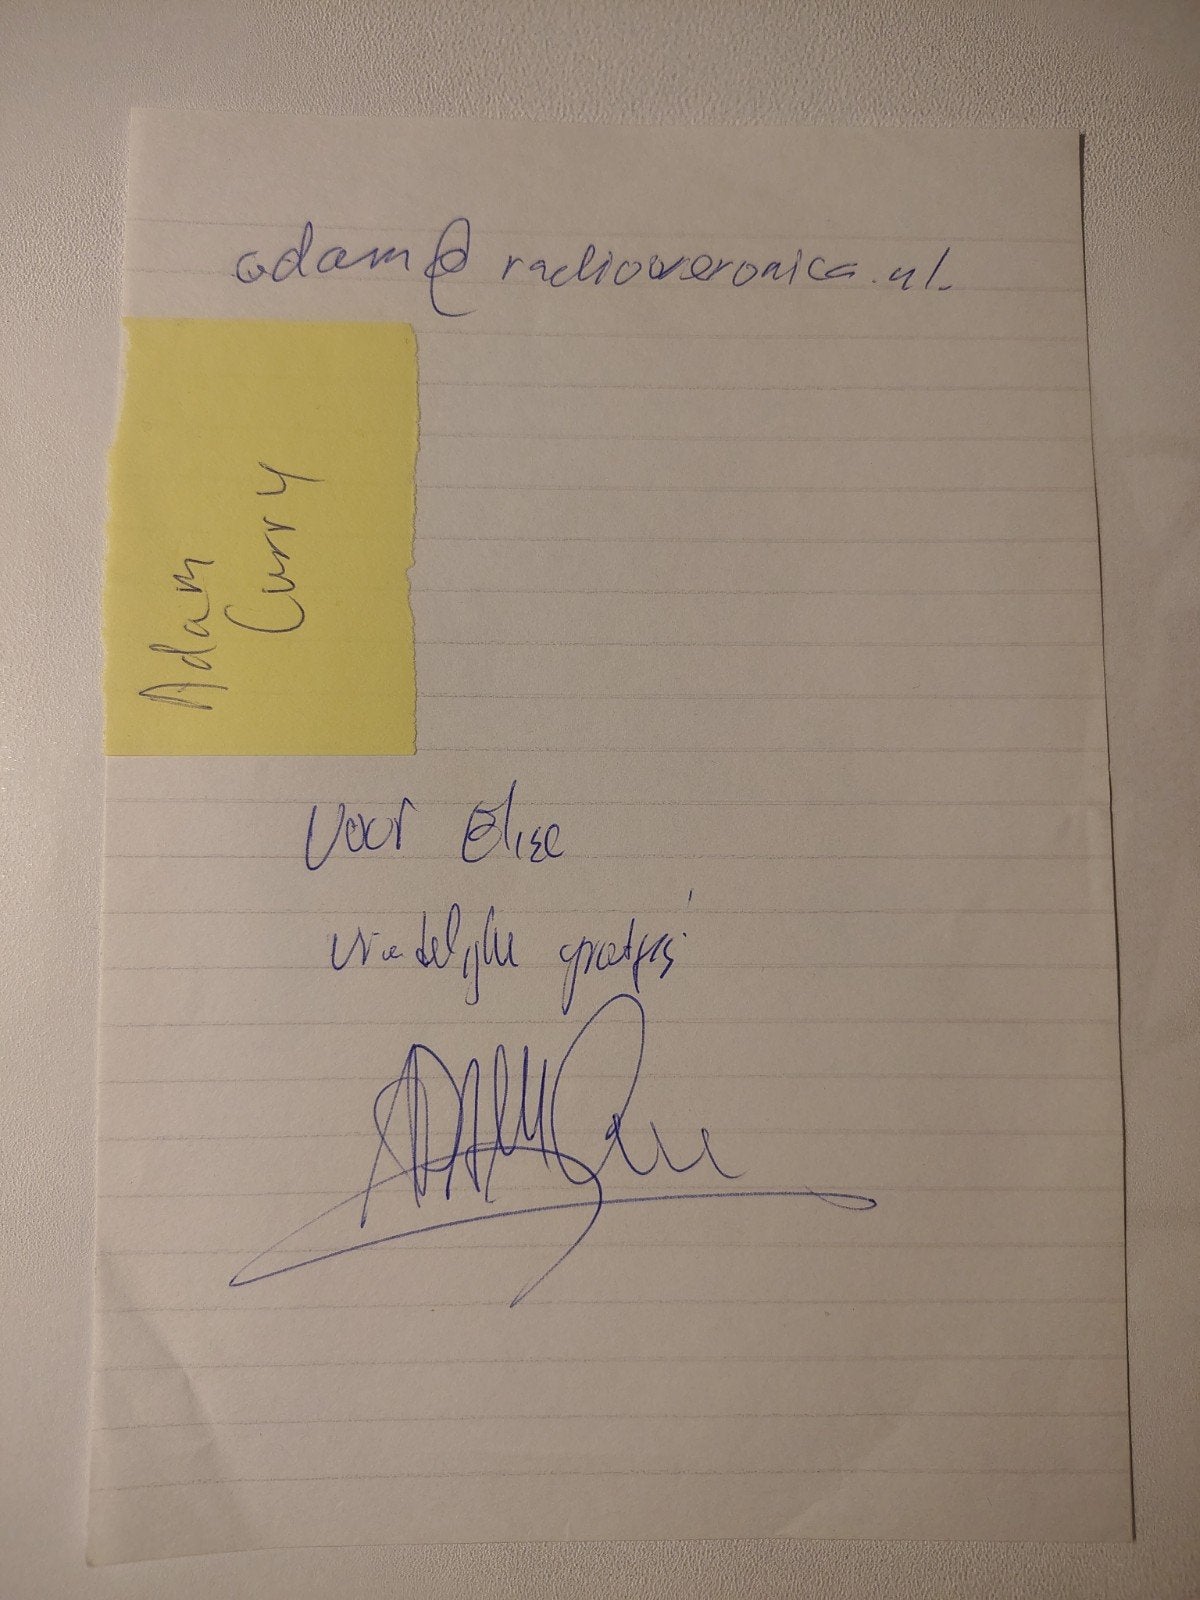 adam@radioveronica.nl.
Adam
Curry
Voor Elise
vriendelijke groetjes